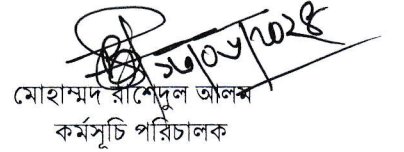 ১৩/০৮/২০২৪
মোহাম্মদ রাশেদুল আলম
কর্মসূচি পরিচালক